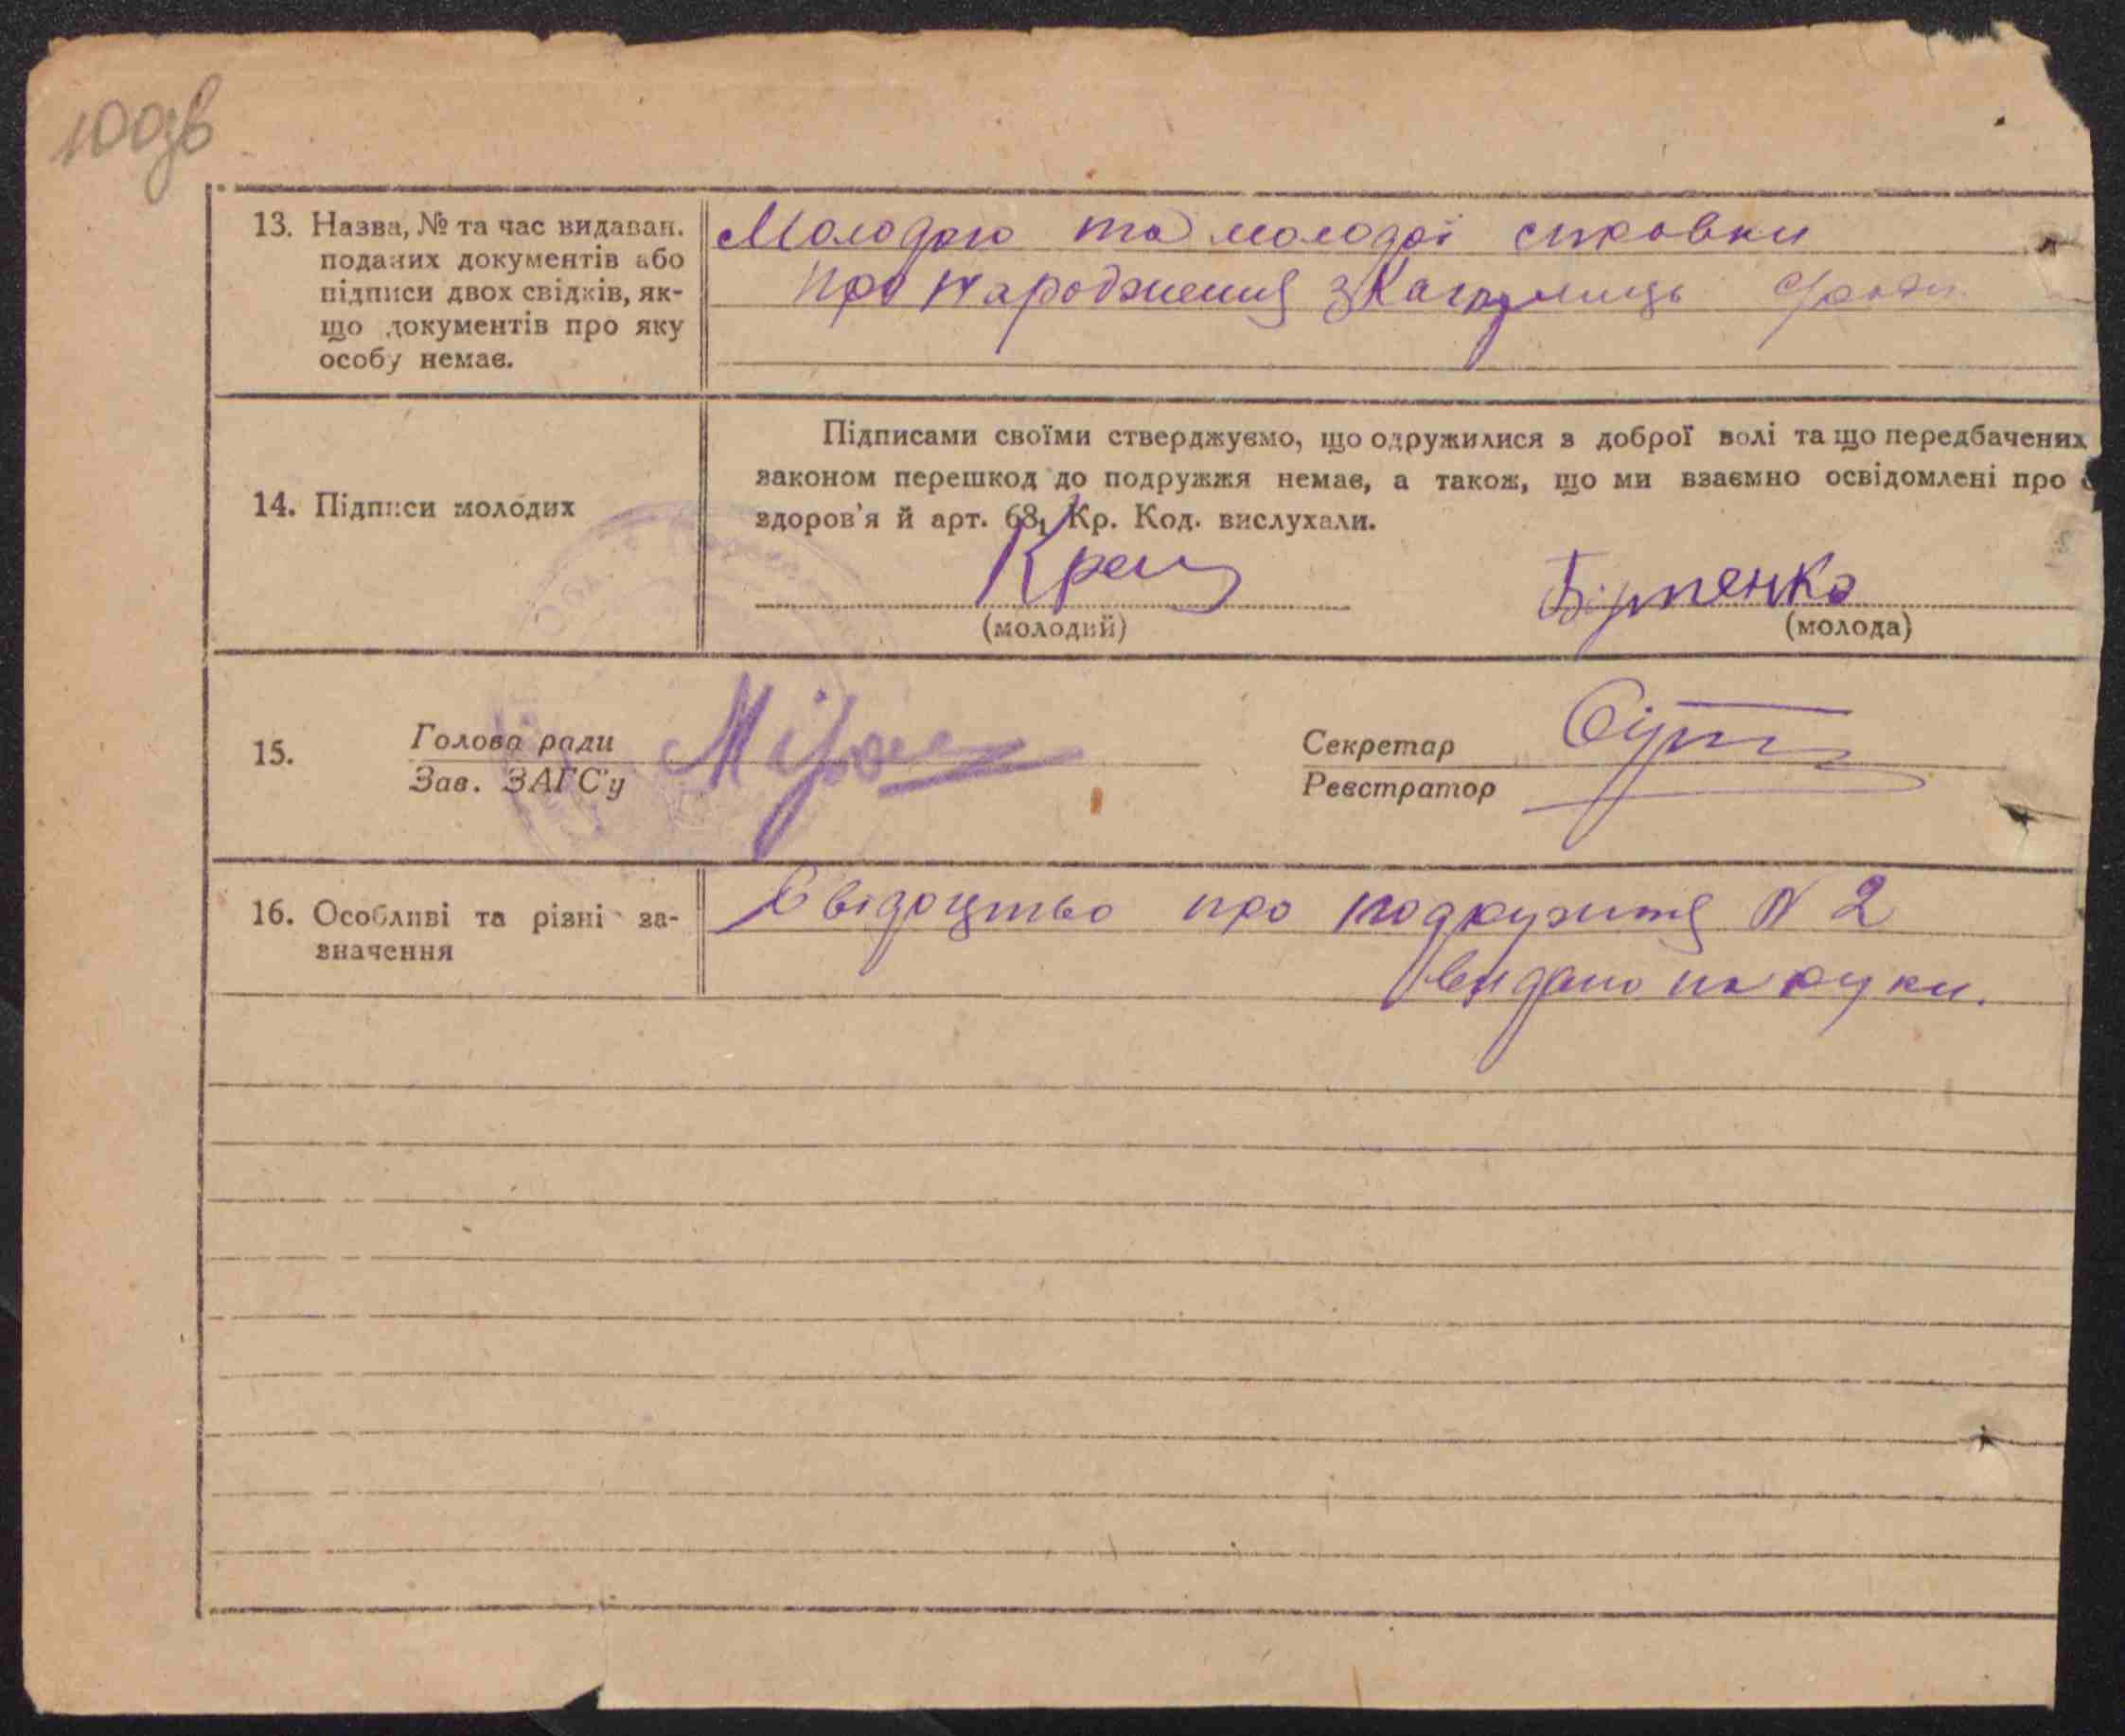 100зв
13. Назва, № та час видаван.
поданих документів або
підписи двох свідків, як-
що документів про яку
особу немає.
Молодого та молодої справки
про народження з
14. Підписи молодих
Підписами своїми стверджуємо, що одружилися з доброї волі та що передбачених
законом перешкод до подружжя немає, а також, що ми взаємно освідомлені про
здоров'я й арт. 68₁ Кр. Код. вислухали.
(молодий)
(молода)
15.
Голова ради
Зав. ЗАГС'у
Секретар
Реєстратор
16. Особливі та різні за-
значення
Свідоцтво про подружжя N 2
видано на руки.